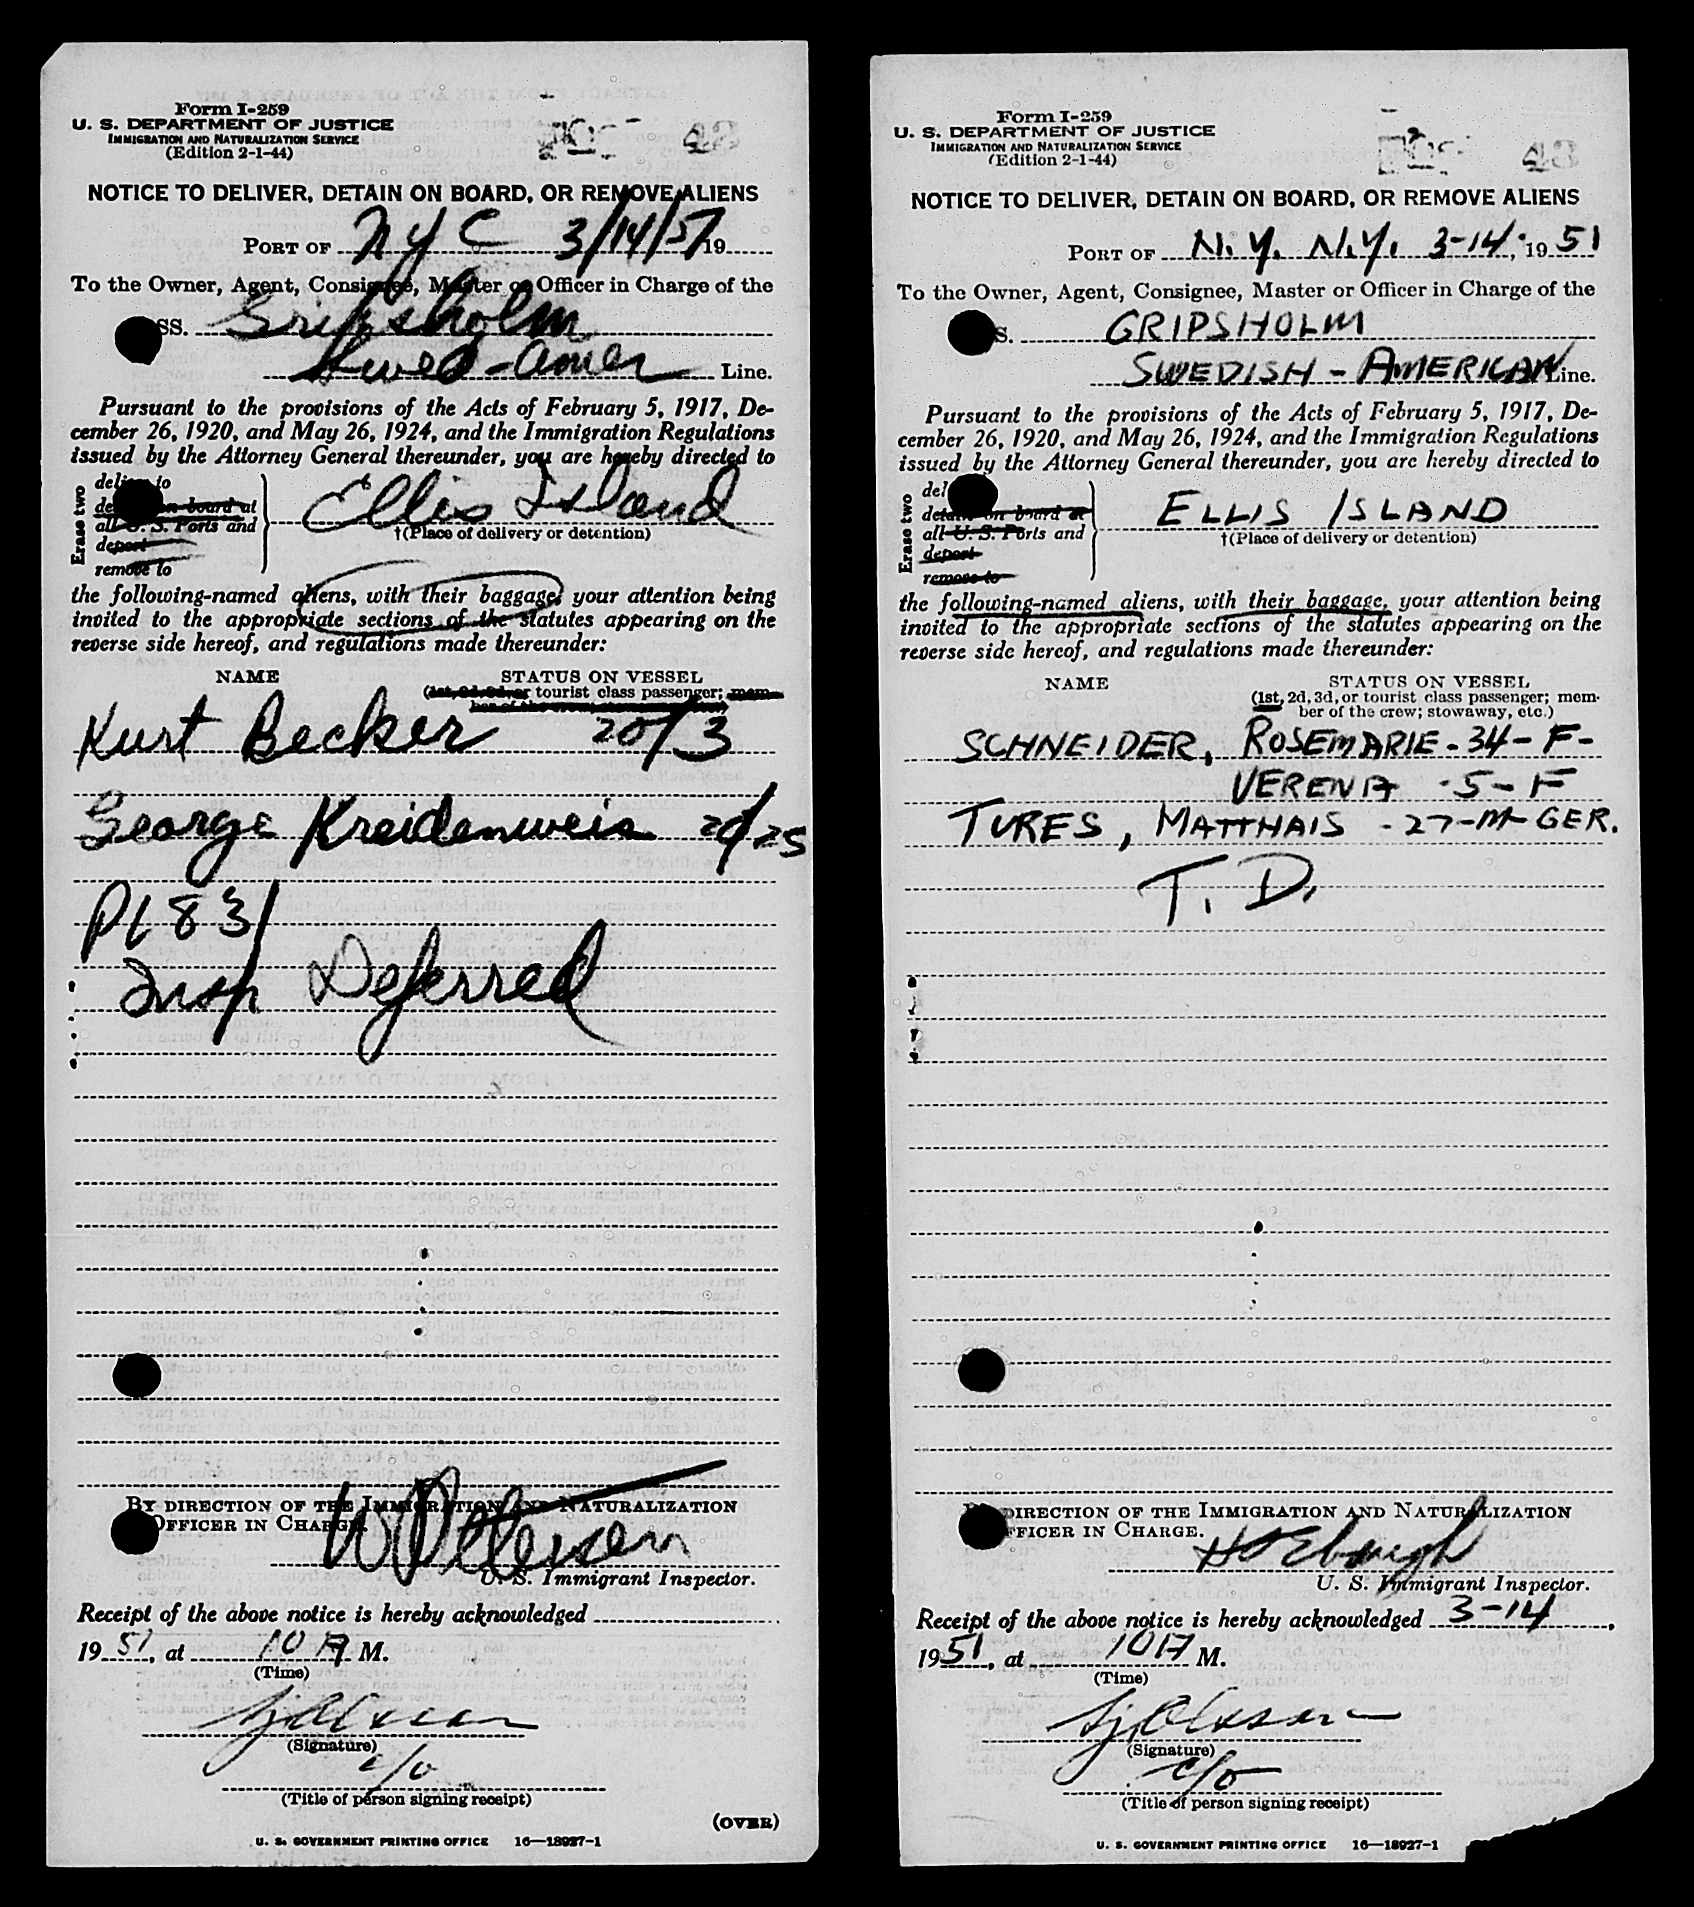 Form I-259
U. S. DEPARTMENT OF JUSTICE
IMMIGRATION AND NATURALIZATION SERVICE
(Edition 2-1-44)
NOTICE TO DELIVER, DETAIN ON BOARD, OR REMOVE ALIENS
PORT OF NYC 3/14/51 19
To the Owner, Agent, Consignee, Master or Officer in Charge of the
SS. Gripsholm
Swed-Amer Line.
Pursuant to the provisions of the Acts of February 5, 1917, De-
cember 26, 1920, and May 26, 1924, and the Immigration Regulations
issued by the Attorney General thereunder, you are hereby directed to
Erase two
deliver to
detain on board at
all U. S. Ports and
deport
remove to
Ellis Island
†(Place of delivery or detention)
the following-named aliens, with their baggage, your attention being
invited to the appropriate sections of the statutes appearing on the
reverse side hereof, and regulations made thereunder:
NAME STATUS ON VESSEL
(1st, 2d, 3d, or tourist class passenger; mem-
ber of the crew; stowaway, etc.)
Kurt Becker 20/3
George Kreidenweis 20/25
P183/
Insp Deferred
BY DIRECTION OF THE IMMIGRATION AND NATURALIZATION
OFFICER IN CHARGE.
U. S. Immigrant Inspector.
Receipt of the above notice is hereby acknowledged
19 51, at 10 A M.
(Time)
(Signature)
c/o
(Title of person signing receipt)
(OVER)
U. S. GOVERNMENT PRINTING OFFICE 16—18927-1
Form I-259
U. S. DEPARTMENT OF JUSTICE
IMMIGRATION AND NATURALIZATION SERVICE
(Edition 2-1-44)
NOTICE TO DELIVER, DETAIN ON BOARD, OR REMOVE ALIENS
PORT OF N.Y. N.Y. 3-14, 19 51
To the Owner, Agent, Consignee, Master or Officer in Charge of the
S. GRIPSHOLM
SWEDISH - AMERICAN Line.
Pursuant to the provisions of the Acts of February 5, 1917, De-
cember 26, 1920, and May 26, 1924, and the Immigration Regulations
issued by the Attorney General thereunder, you are hereby directed to
Erase two
del
detain on board at
all U. S. Ports and
deport
remove to
ELLIS ISLAND
†(Place of delivery or detention)
the following-named aliens, with their baggage, your attention being
invited to the appropriate sections of the statutes appearing on the
reverse side hereof, and regulations made thereunder:
NAME STATUS ON VESSEL
(1st, 2d, 3d, or tourist class passenger; mem-
ber of the crew; stowaway, etc.)
SCHNEIDER, ROSEMARIE - 34 - F -
VERENA - 5 - F
TURES, MATTHAIS - 27 - M - GER.
T. D.
DIRECTION OF THE IMMIGRATION AND NATURALIZATION
OFFICER IN CHARGE.
U. S. Immigrant Inspector.
Receipt of the above notice is hereby acknowledged 3-14,
19 51, at 10 A M.
(Time)
(Signature)
c/o
(Title of person signing receipt)
U. S. GOVERNMENT PRINTING OFFICE 16—18927-1